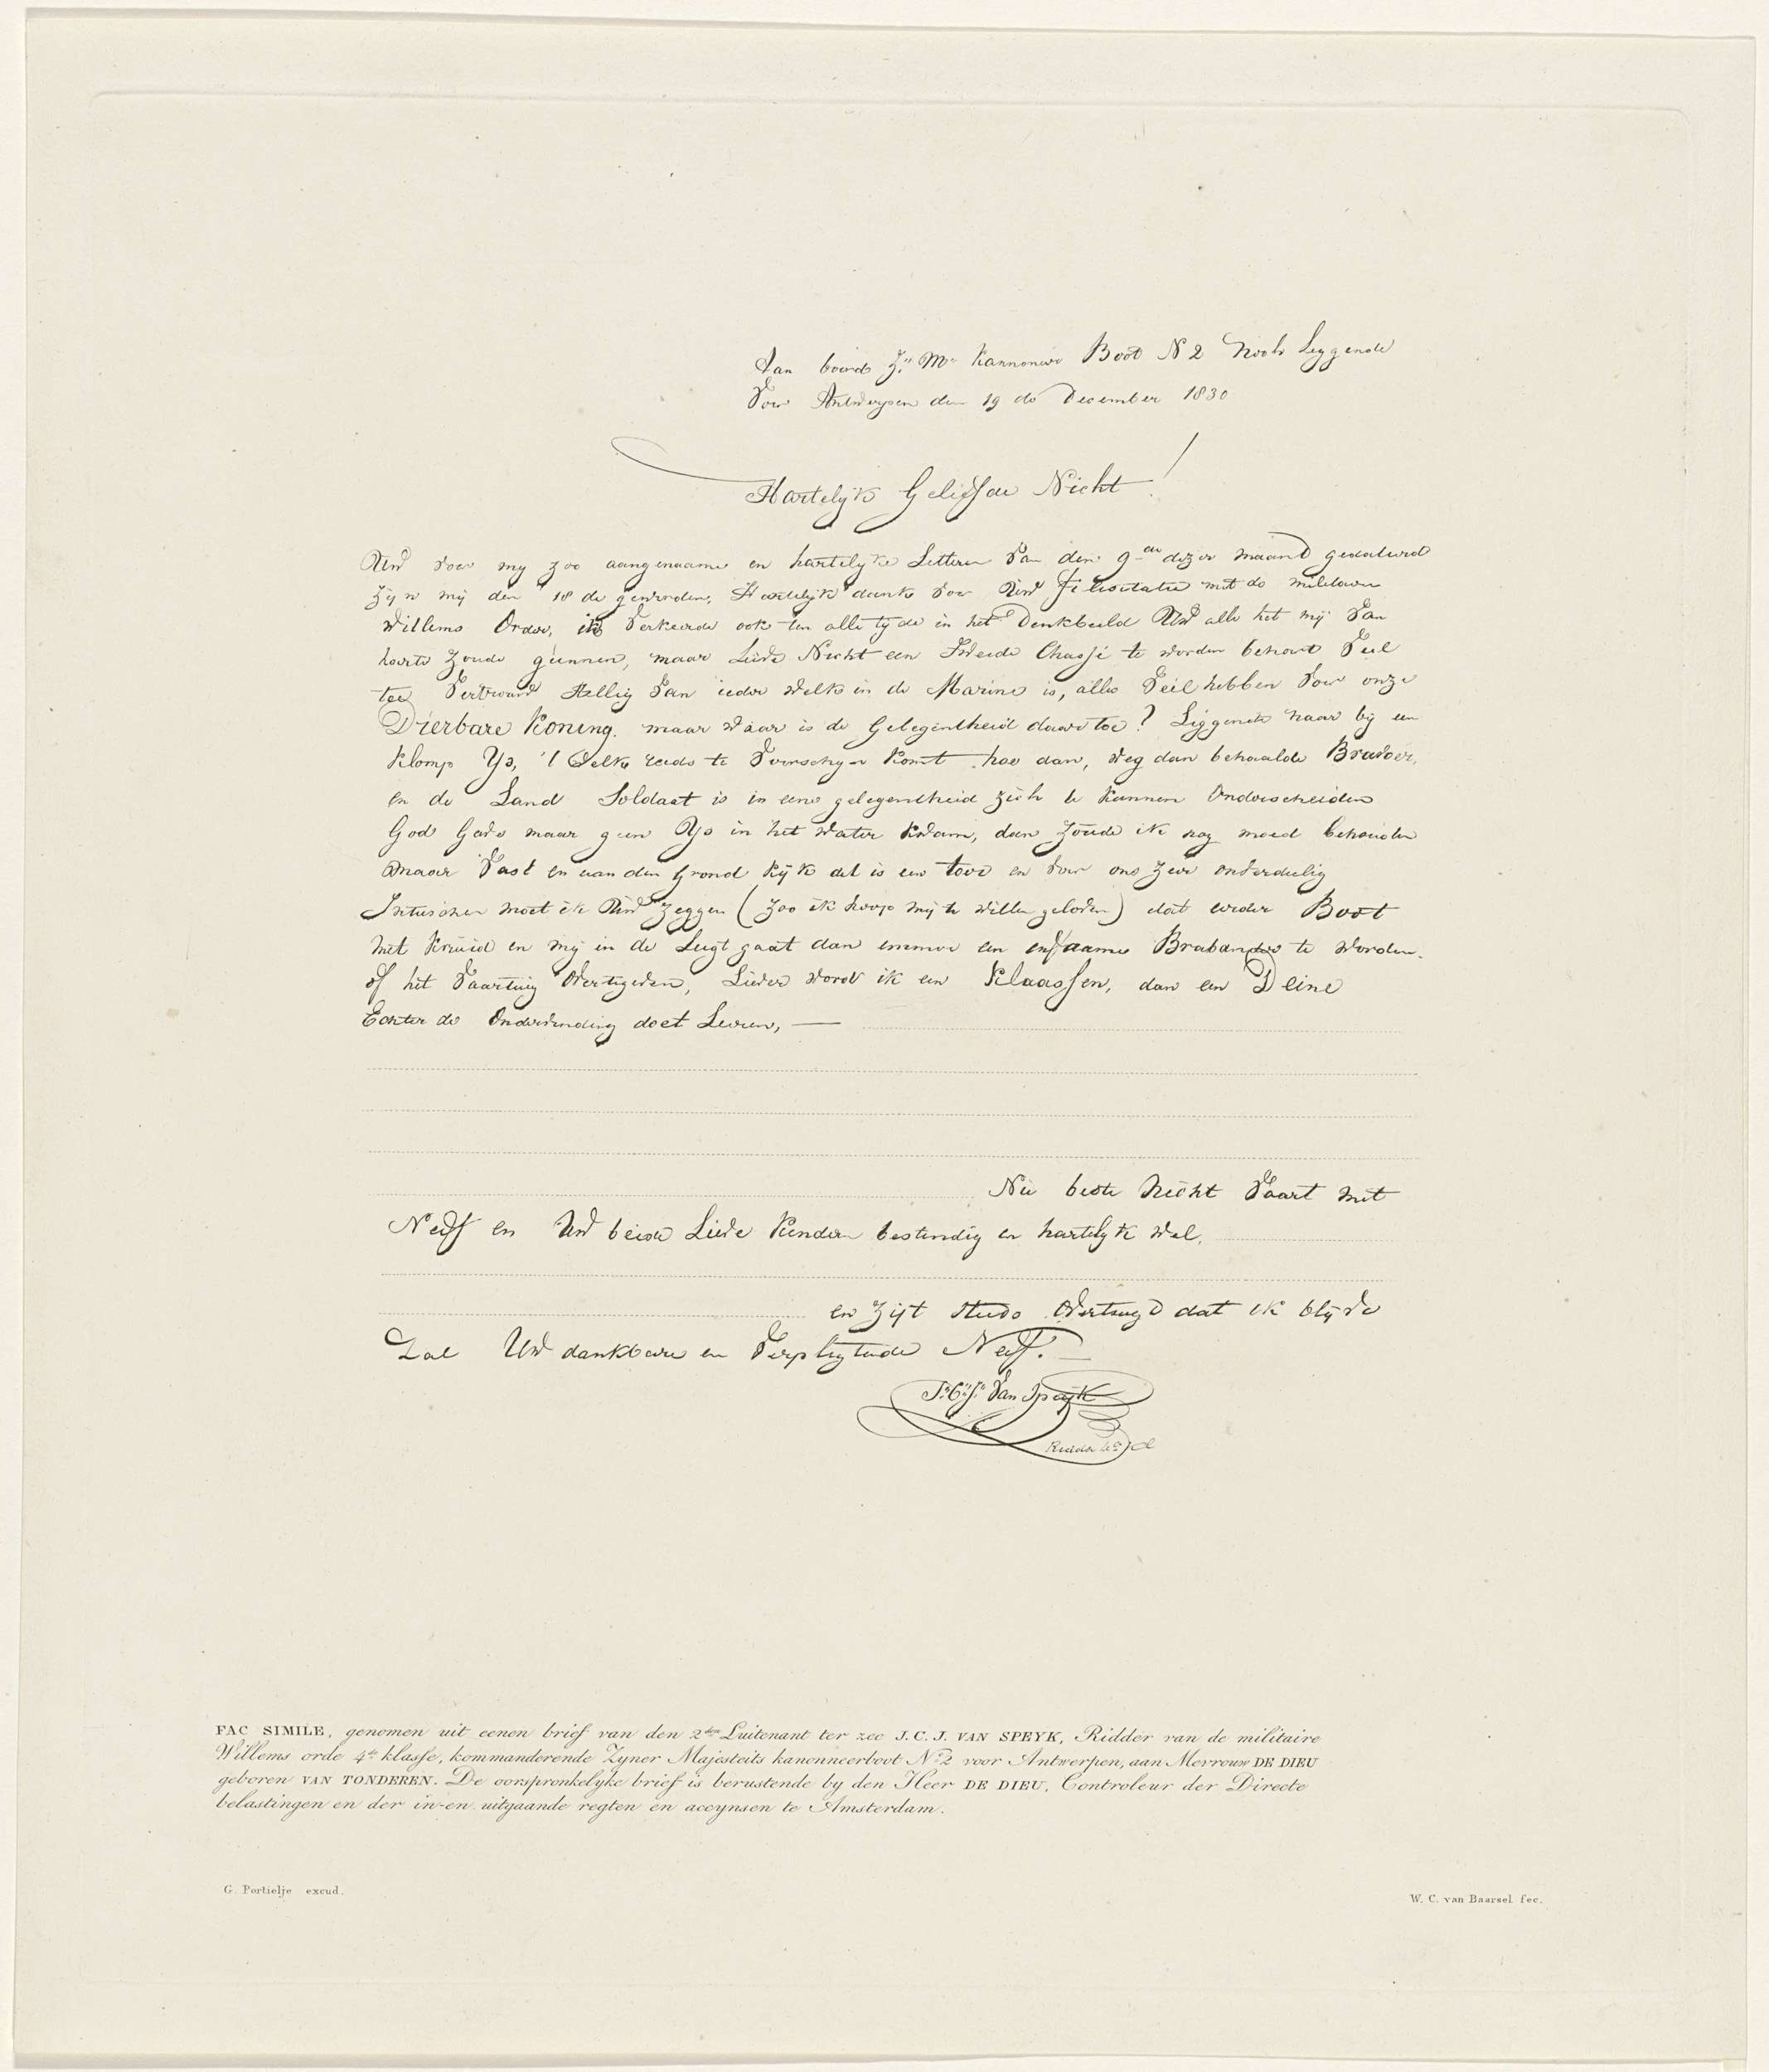 Aan boord Z.r M.s Kannoneer Boot N 2 noch Leggende
voor Antwerpen den 19 de December 1830
Hartelijk Geliefde Nicht!
Uw voor my zoo aangenaame en hartelyke Letteren van den 9de dezer maand gedateerd
zijn mij den 18 de geworden, Hartelijk dank voor Uw felicitatie met de militaire
Willems Order, ik verkeerde ook ten alle tyde in het Denkbeeld Uw alle het mij van
harte zoude gunnen, maar Lieve Nicht een tweede Chassé te worden behoort veel
toe Stellig van ieder welke in de Marine is, alles veil hebben voor onze
Dierbare Koning. maar waar is de Gelegentheid daar toe? Liggende naar bij een
Klomp Ys, 't Welk reeds te voorschyn komt hoe dan, weg dan behaalde Bravoer,
en de Land Soldaat is in eene gelegendheid zich te kunnen Onderscheiden
God Gave maar geen Ys in het water kwam, dan zoude ik nog moed behouden
maar vast en aan den Grond kijk dat is een toer en voor ons zeer
Intusschen moet ik Uw zeggen (zoo ik hoop mij te willen geloven) dat eerder Boot
met Kruid en my in de Lugt gaat dan emmer een enfaame Brabander te worden.
of het Vaartuig Overtegeven, Liever word ik een Klaassen, dan een Deine
Echter de Ondervinding doet Leeren, —
Nu beste Nicht vaart met
Neeff en Uw beide Lieve Kinderen bestendig en hartelyk wel.
en zijt steeds Overtuygd dat ik blyve
Zal Uw dankbare en Verpligtende Neeff. —
J.C.J. van Speyk
Ridder &c
FAC SIMILE, genomen uit eenen brief van den 2den Luitenant ter zee J. C. J. VAN SPEYK, Ridder van de militaire
Willems orde 4de klasse, kommanderende Zyner Majesteits kanonneerboot No 2 voor Antwerpen, aan Mevrouw DE DIEU
geboren VAN TONDEREN. De oorspronkelyke brief is berustende by den Heer DE DIEU, Controleur der Directe
belastingen en der in-en uitgaande regten en accynsen te Amsterdam.
G. Portielje excud.
W. C. van Baarsel fec.